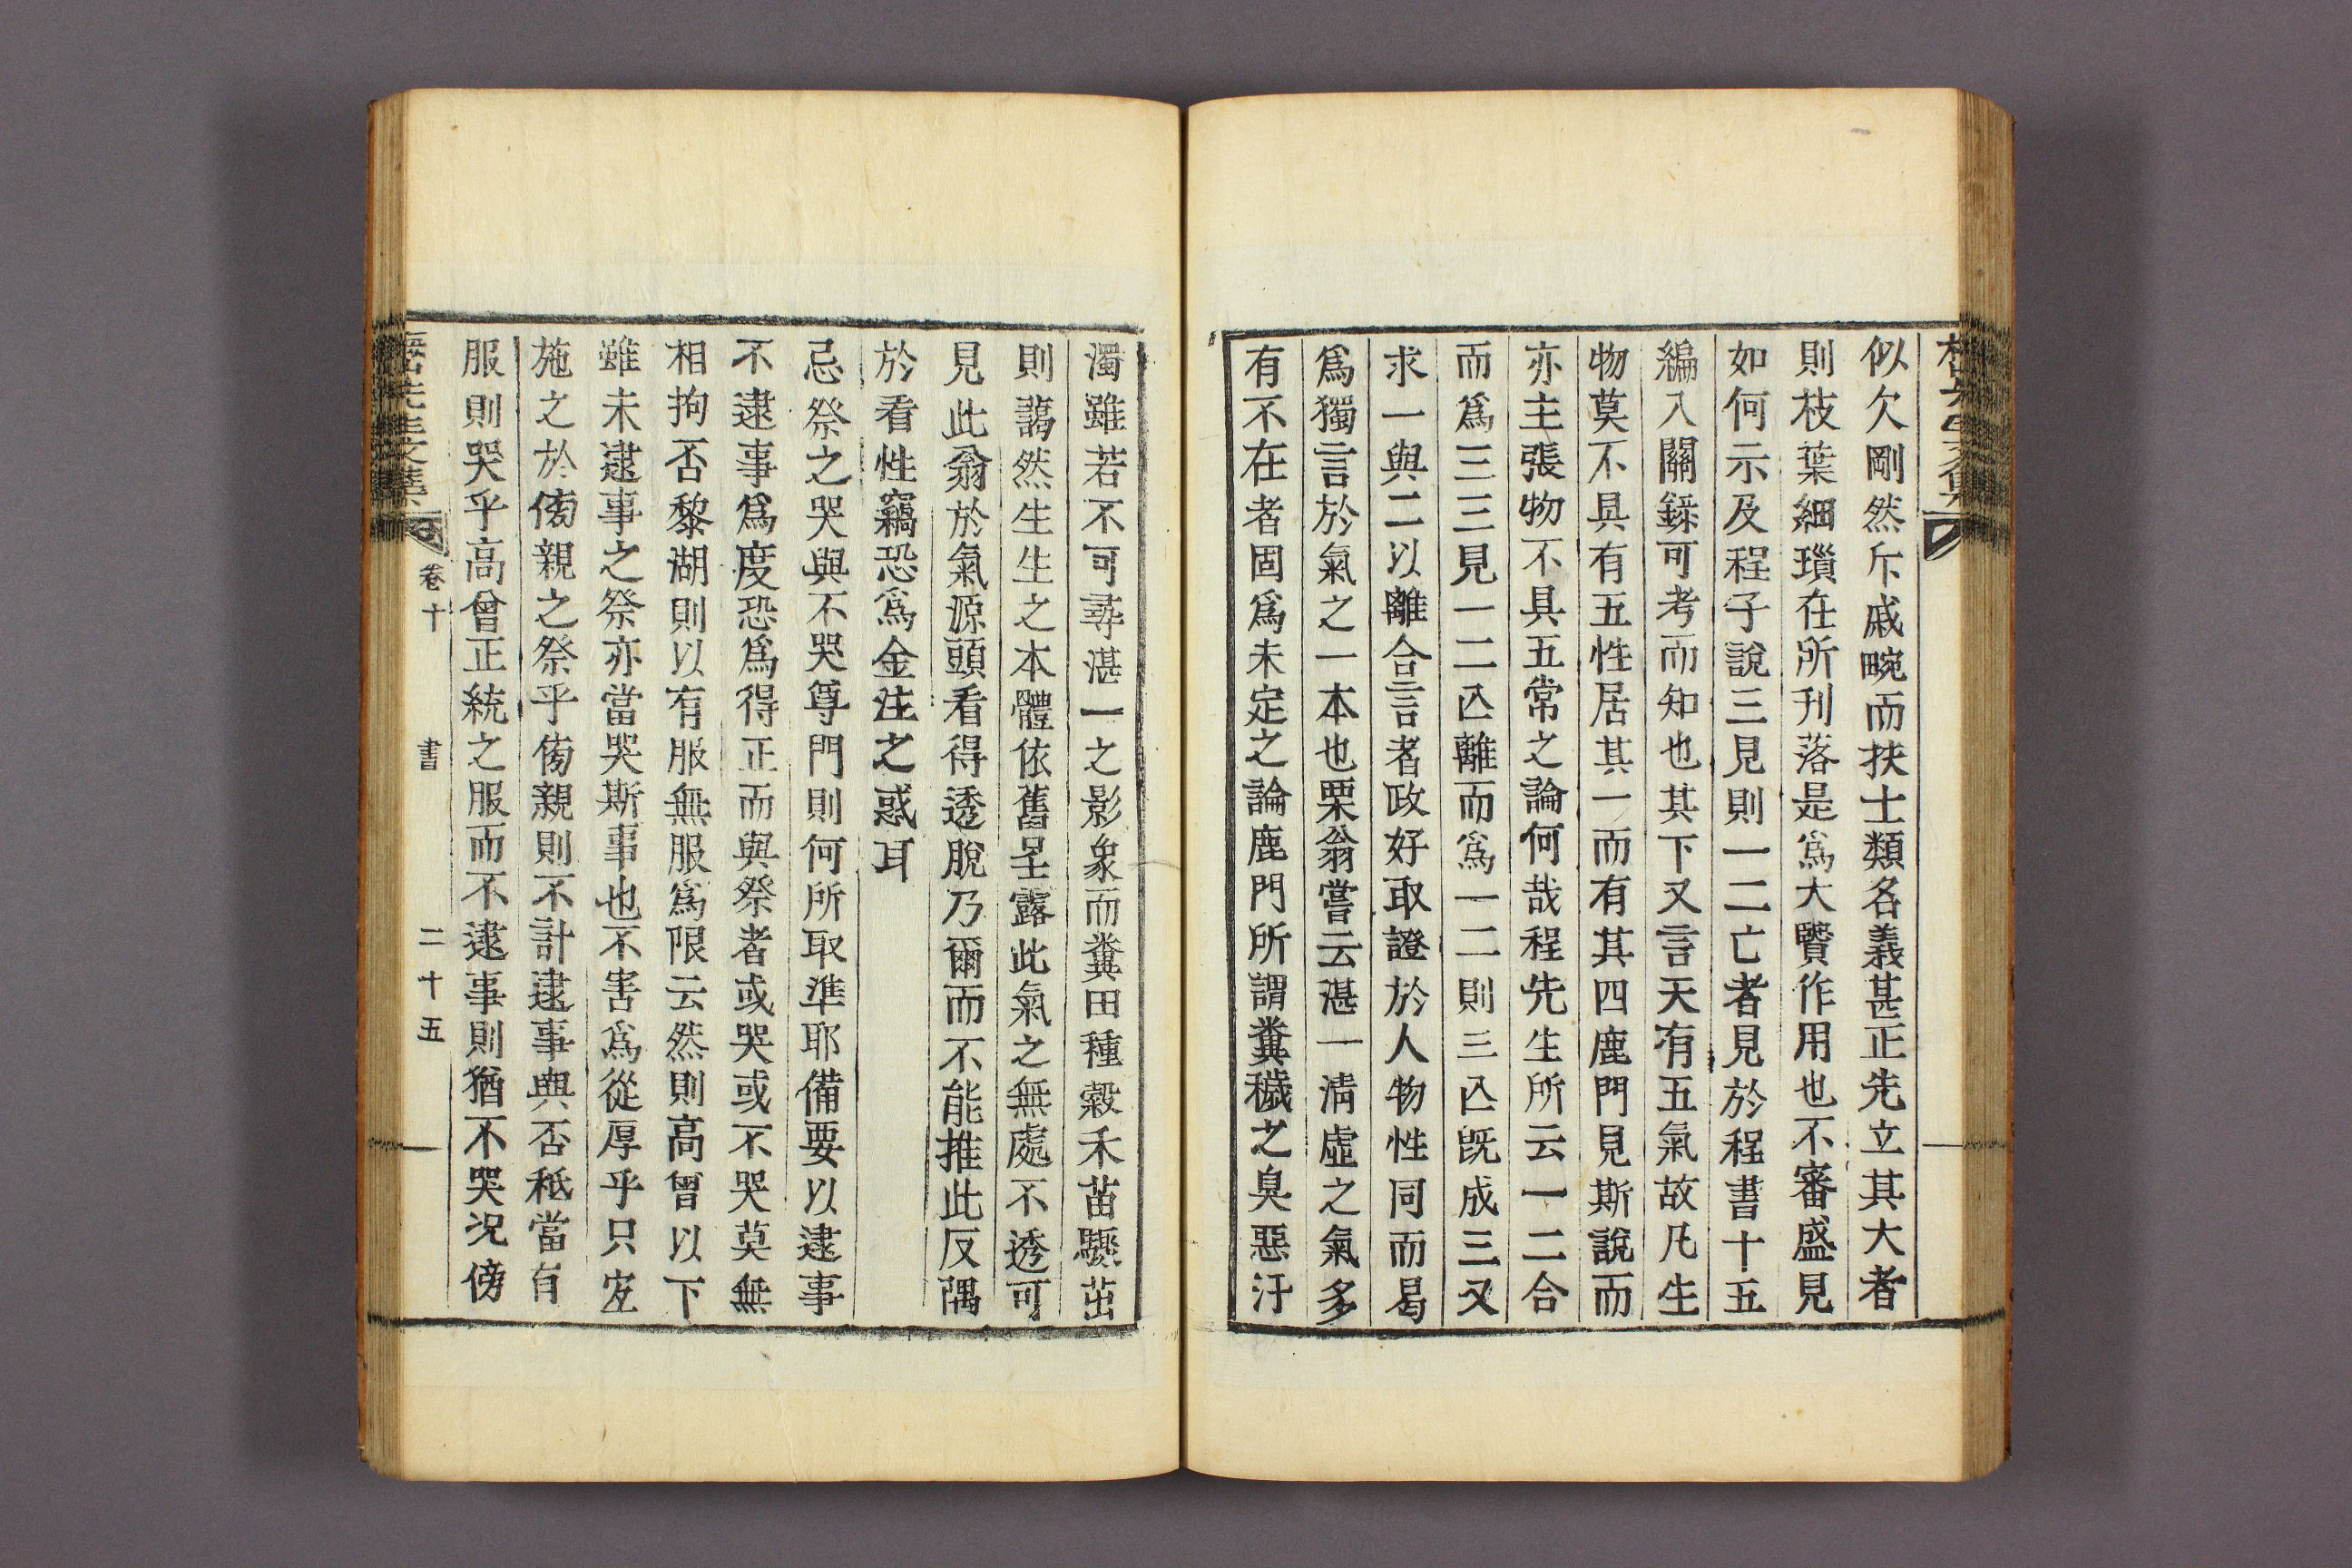 似欠剛然斥戚畹而扶士類名義甚正先立其大者
則枝葉細瑣在所刊落是爲大賢作用也不審盛見
如何示及程子說三見則一二亡者見於程書十五
編入關錄可考而知也其下又言天有五氣故凡生
物莫不具有五性居其一而有其四鹿門見斯說而
亦主張物不具五常之論何哉程先生所云一二合
而爲三三見一二亾離而爲一二則三亾旣成三又
求一與二以離合言者政好取證於人物性同而曷
爲獨言於氣之一本也栗翁嘗云湛一淸虛之氣多
有不在者固爲未定之論鹿門所謂糞穢之臭惡汙
濁雖若不可尋湛一之影象而糞田種穀禾苗驟茁
則藹然生生之本體依舊呈露此氣之無處不透可
見此翁於氣源頭看得透脫乃爾而不能推此反隅
於看性竊恐爲金注之惑耳
忌祭之哭與不哭尊門則何所取準耶備要以逮事
不逮事爲度恐爲得正而與祭者或哭或不哭莫無
相拘否黎湖則以有服無服爲限云然則高曾以下
雖未逮事之祭亦當哭斯事也不害爲從厚乎只宐
施之於傍親之祭乎傍親則不計逮事與否秪當有
服則哭乎高曾正統之服而不逮事則猶不哭况傍
先生文集
卷十
書
二十五